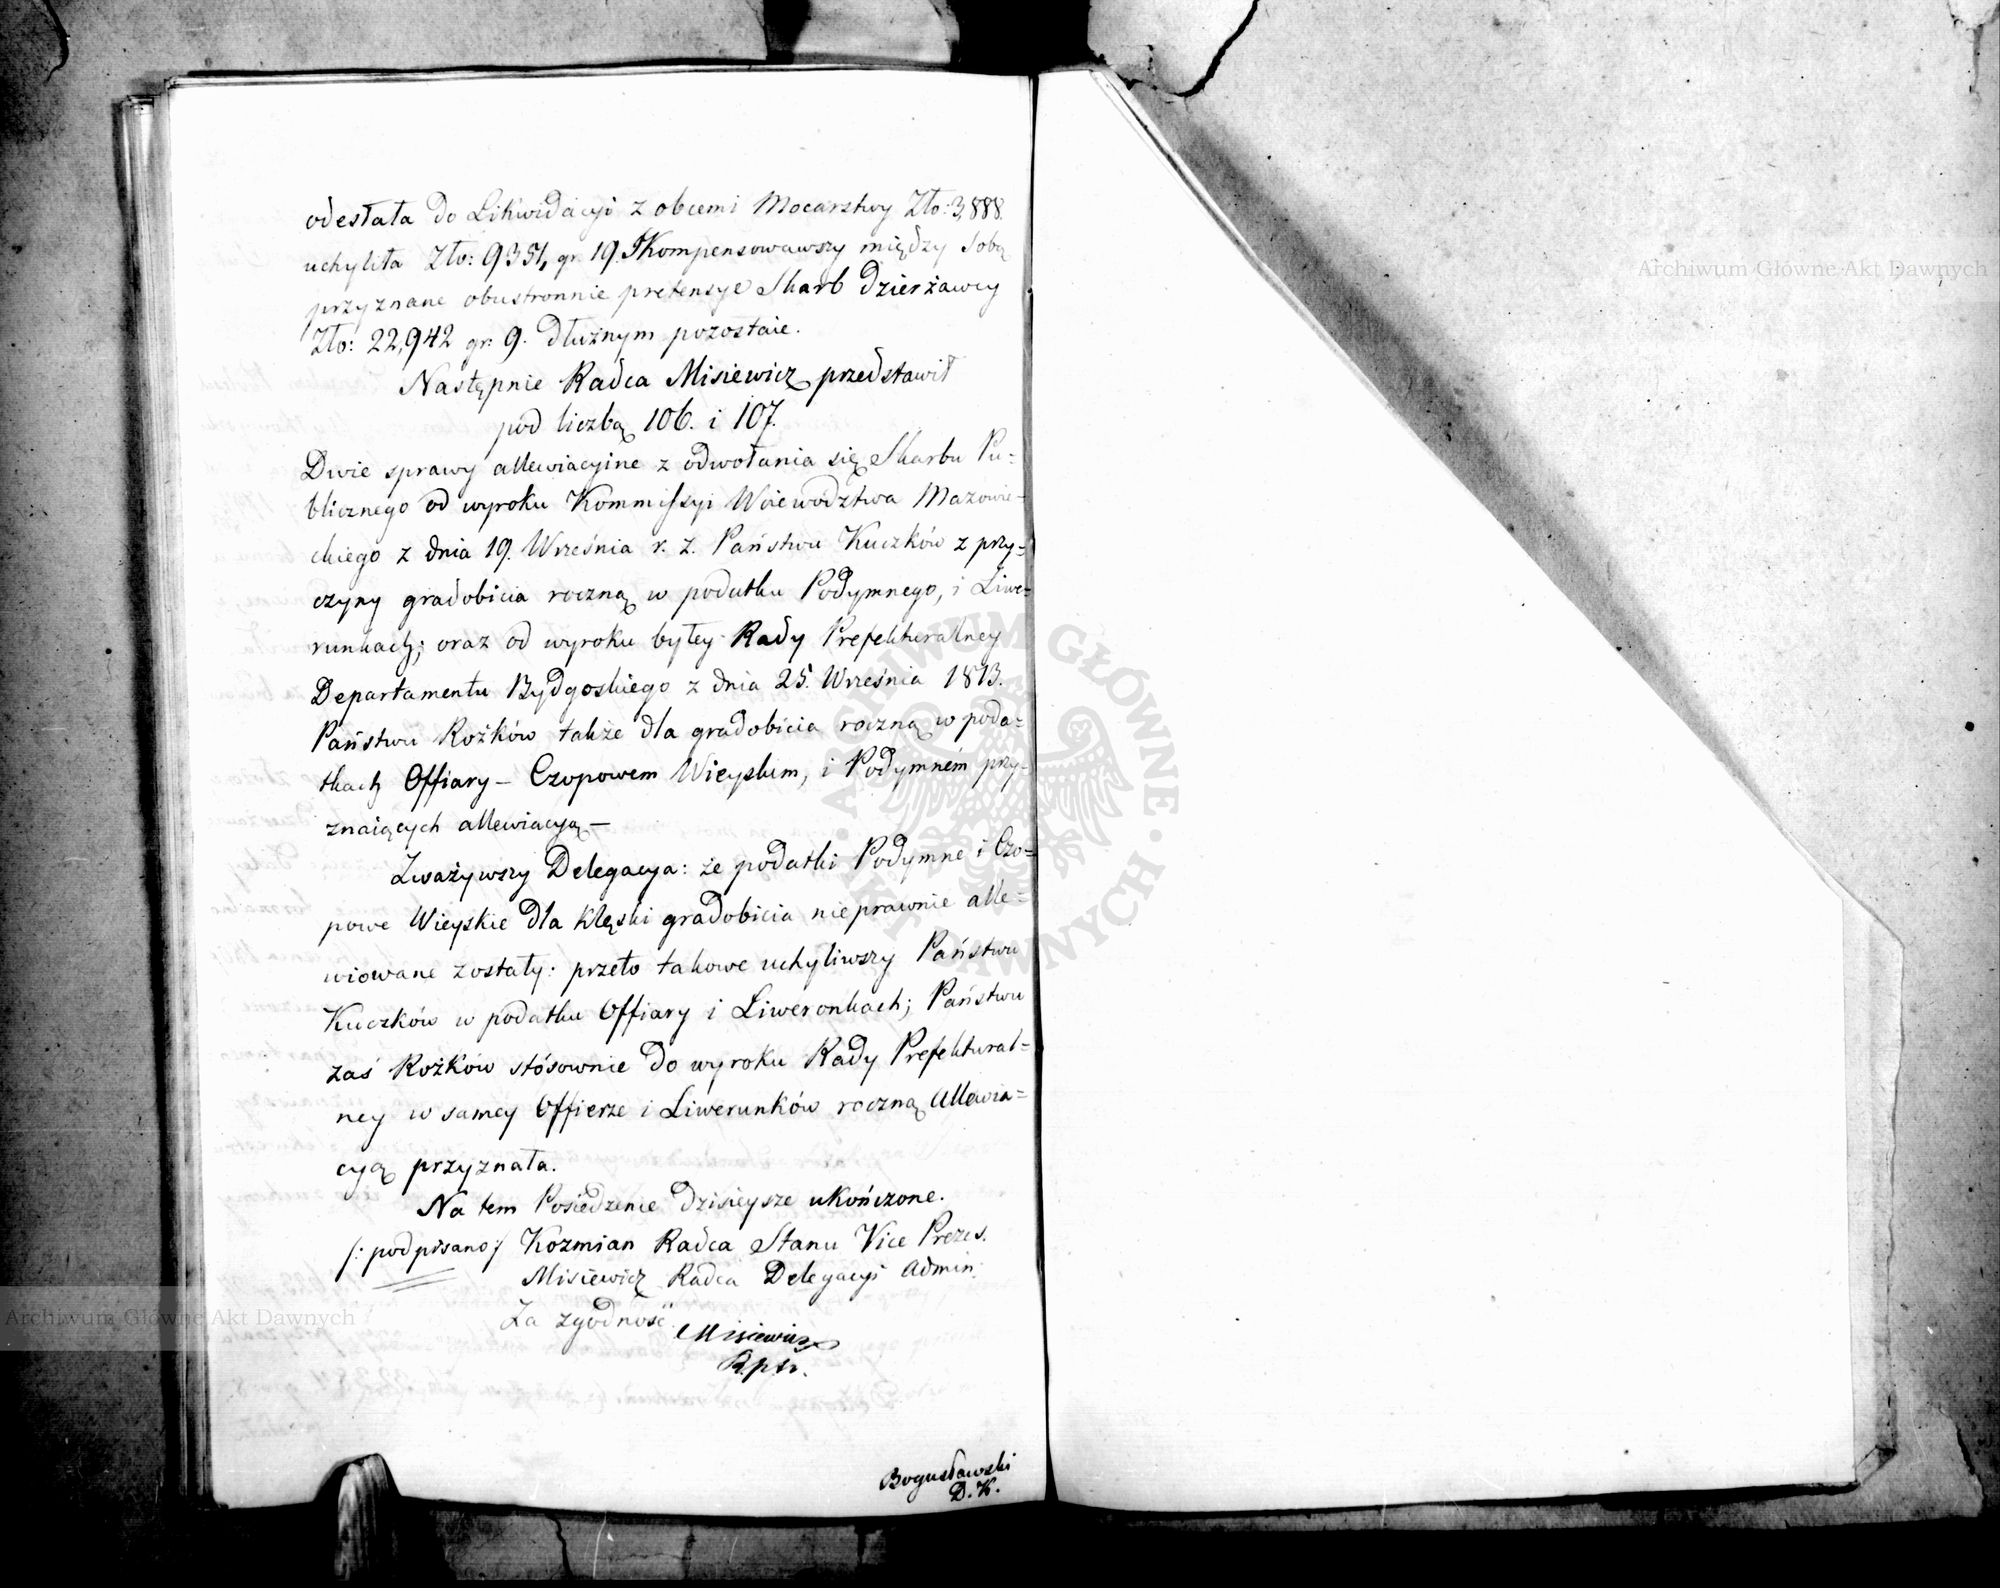 odesłała do Likwidacyi z obcemi Mocarstwy Zło: 3,888.
uchyliła Zło: 9351, gr. 19. Skompensowawszy między Sobą
przyznane obustronnie pretensye Skarb Dzierżawcy
Zło: 22,942 gr. 9. Dłużnym pozostaie.
Następnie Radca Misiewicz przedstawił
pod liczbą 106. i 107.
Dwie sprawy allewiacyine z odwołania się Skarbu Pu=
blicznego od wyroku Kommissyi Woiewodztwa Mazowie=
ckiego z dnia 19. Września r. z. Państwu Kuczków z przy=
czyny gradobicia roczną w podatku Podymnego, i Liwe=
runkach; oraz od wyroku byłey Rady Prefekturalney
Departamentu Bydgoskiego z dnia 25. Września 1813.
Państwu Rożków także dla gradobicia roczną w poda=
tkach Offiary – Czopowem Wieyskim, i Podymném przy=
znaiących allewiacyą –
Zważywszy Delegacya: że podatki Podymne i Czo=
powe Wieyskie dla klęski gradobicia nieprawnie alle=
wiowane zostały: przeto takowe uchyliwszy Państwu
Kuczków w podatku Offiary i Liweronkach; Państwu
zaś Rożków stósownie do wyroku Rady Prefektural=
ney w samey Offierze i Liwerunków roczną allewia=
cyą przyznała.
Na tem Posiedzenie dzisieysze ukończone.
/: podpisano :/ Kozmian Radca Stanu Vice Prezes.
Misiewicz Radca Delegacyi Admin:
Za zgodność
Misiewicz
Bogusławski
D. K.
Archiwum Główne Akt Dawnych
Archiwum Główne Akt Dawnych
ARCHIWUM GŁÓWNE · AKT DAWNYCH ·